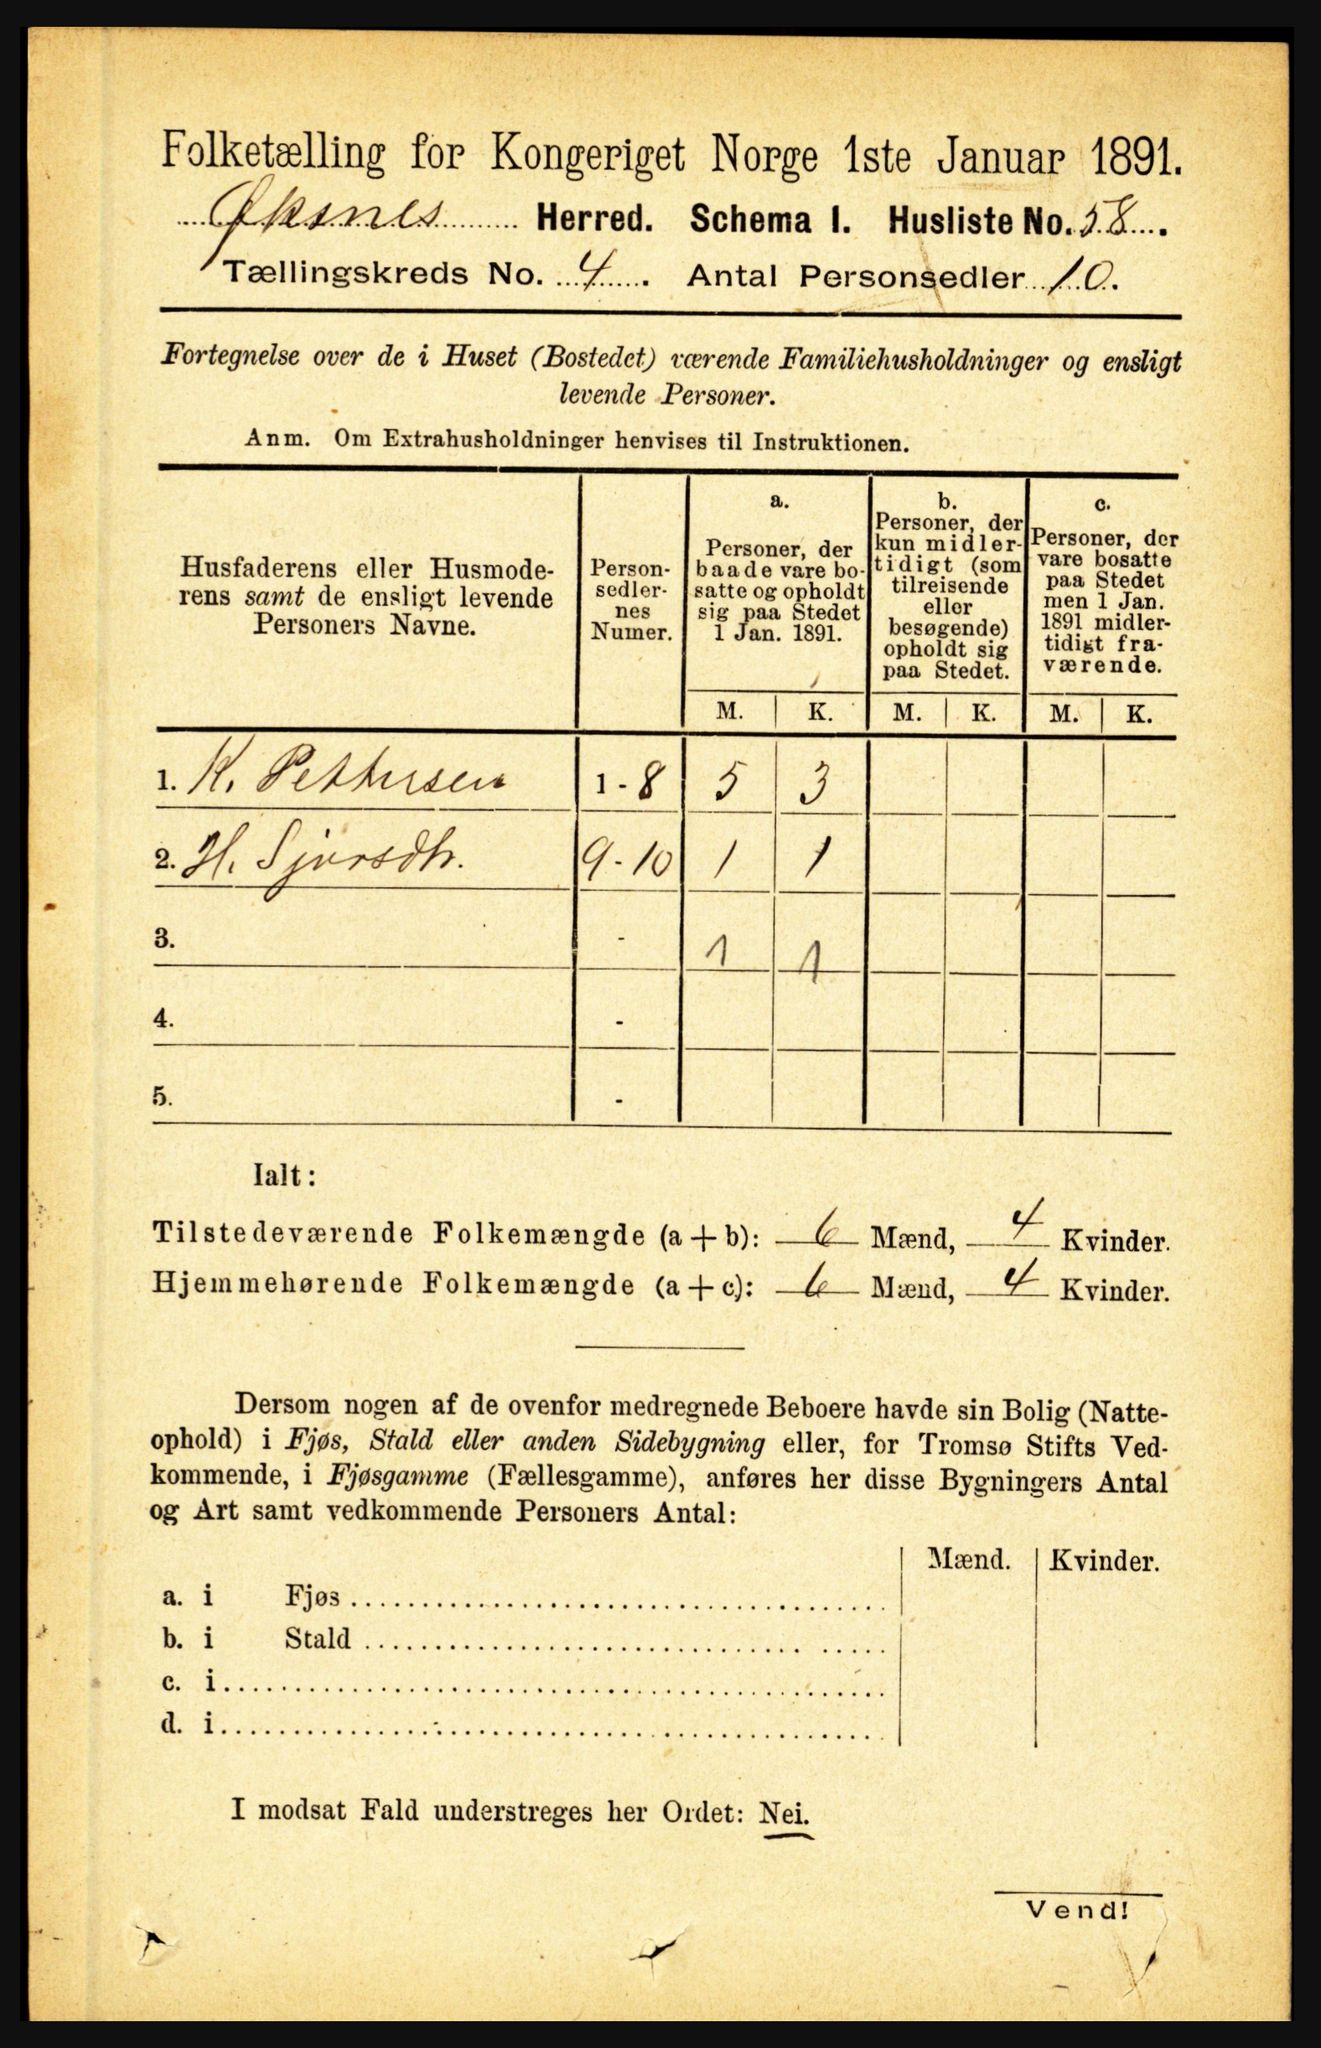 Folketælling for Kongeriget Norge 1ste Januar 1891.
Øksnes Herred. Schema I. Husliste No. 58.
Tællingskreds No. 4. Antal Personsedler 10.
Fortegnelse over de i Huset (Bostedet) værende Familiehusholdninger og ensligt
levende Personer.
Anm. Om Extrahusholdninger henvises til Instruktionen.
Husfaderens eller Husmode-
rens samt de ensligt levende
Personers Navne.
Person-
sedler-
nes
Numer.
a.
Personer, der
baade vare bo-
satte og opholdt
sig paa Stedet
1 Jan. 1891.
b.
Personer, der
kun midler-
tidigt (som
tilreisende
eller
besøgende)
opholdt sig
paa Stedet.
c.
Personer, der
vare bosatte
paa Stedet
men 1 Jan.
1891 midler-
tidigt fra-
værende.
M. K. M. K. M. K.
1. K. Pettersen 1 - 8 5 3
2. H. Sjursdtr. 9 - 10 1 1
3. - 1 1
4. -
5. -
Ialt:
Tilstedeværende Folkemængde (a + b): 6 Mænd, 4 Kvinder.
Hjemmehørende Folkemængde (a + c): 6 Mænd, 4 Kvinder.
Dersom nogen af de ovenfor medregnede Beboere havde sin Bolig (Natte-
ophold) i Fjøs, Stald eller anden Sidebygning eller, for Tromsø Stifts Ved-
kommende, i Fjøsgamme (Fællesgamme), anføres her disse Bygningers Antal
og Art samt vedkommende Personers Antal:
Mænd. Kvinder.
a. i Fjøs
b. i Stald
c. i
d. i
I modsat Fald understreges her Ordet: Nei.
Vend!